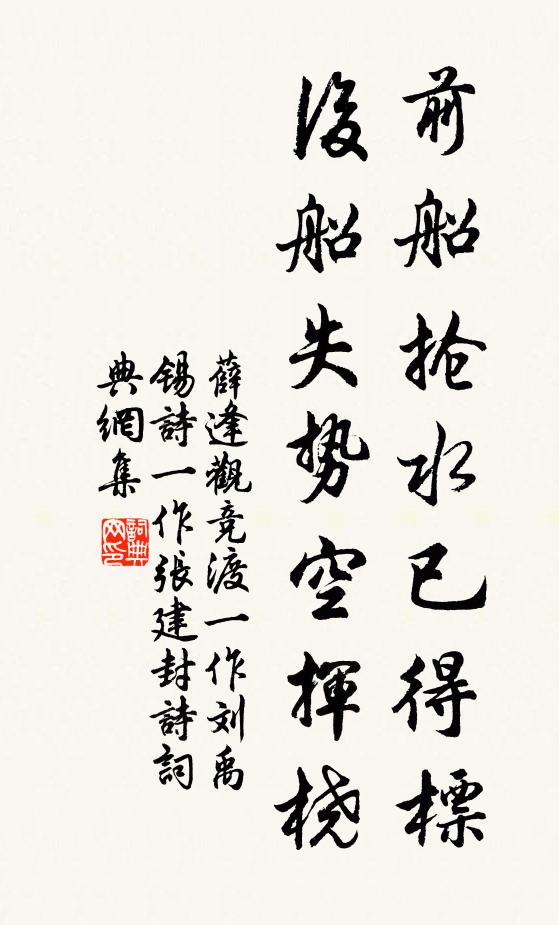 前船抢水已得標
後船失势空揮桡
薛逢觀竞渡一作刘禹
锡詩一作張建封詩詞
典網集
詞典网印